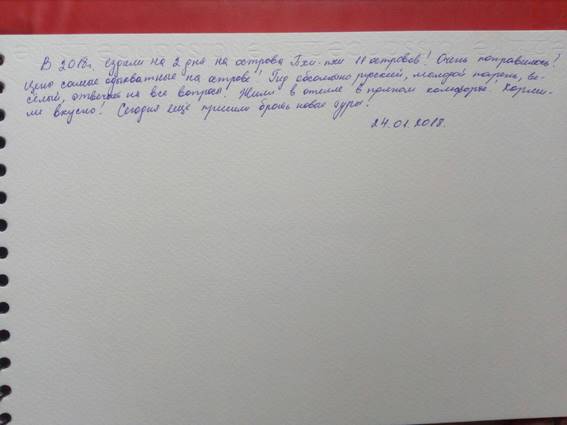 В 2018г. ездили на 2 дня на острова Пхи-пхи 11 островов! Очень понравилось!
Цены самые адекватные на острове! Гид абсолютно русский, молодой парень, ве-
сёлый, отвечал на все вопросы! Жили в отеле в полном комфорте! Корми-
ли вкусно! Сегодня ещё пришли брать новые туры!
24.01.2018.